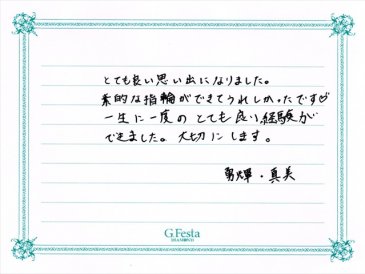 とても良い思い出になりました。
素的な指輪ができてうれしかったです♡
一生に一度のとても良い経験が
できました。大切にします。
勇輝・真美
G.Festa